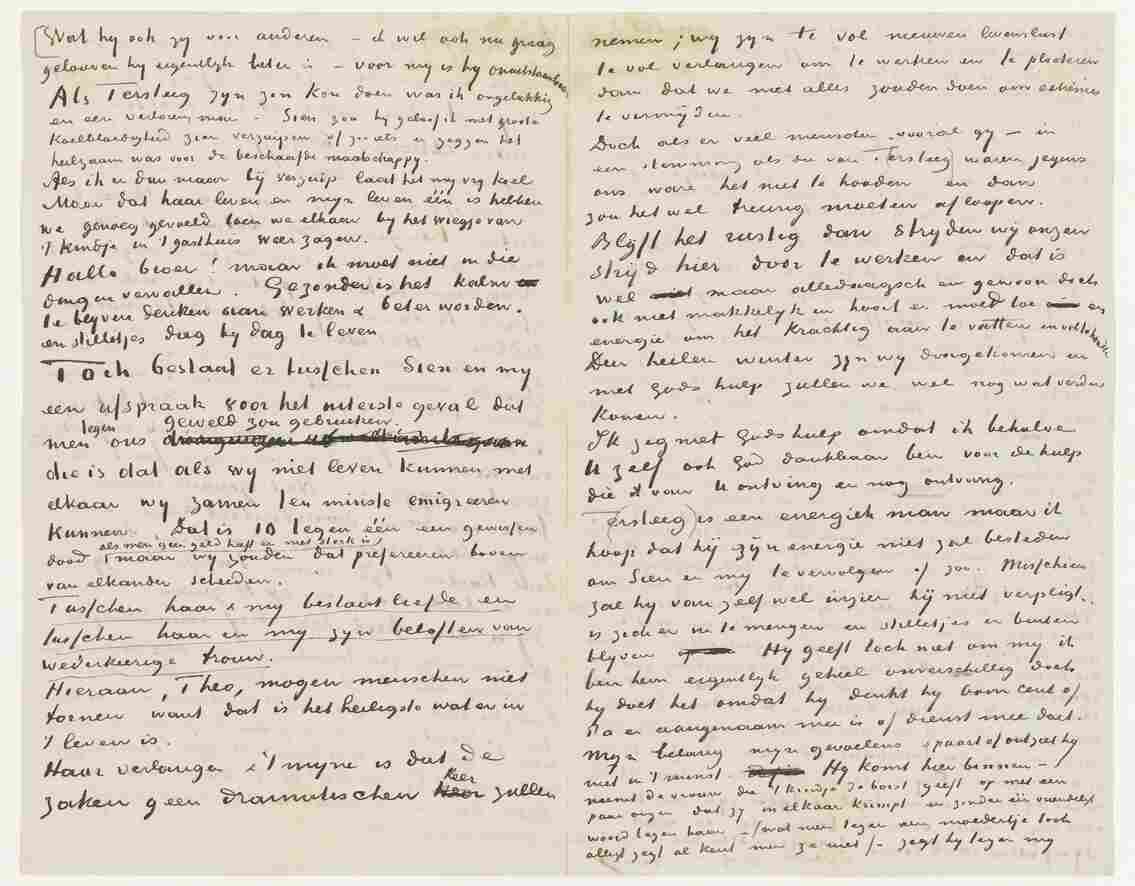 Wat hy ook zy voor anderen – ik wil ook nu graag
gelooven hy eigentlyk beter is – voor my is hy onuitstaanbaar
Als Tersteeg zyn zin kon doen was ik ongelukkig
en een verloren man – Sien zou hy geloof ik met groote
koelbloedigheid zien verzuipen of zoo iets en zeggen het
heilzaam was voor de beschaafde maatschappy.
Als ik er dan maar bij verzuip laat het my vry koel
Maar dat haar leven en myn leven één is hebben
we genoeg gevoeld toen we elkaar by het wiegje van
't kindje in 't gasthuis weer zagen.
Hallo broer! maar ik moet niet in die
dingen vervallen. Gezonder is het kalm
te blyven denken aan werken & beter worden.
en stilletjes dag by dag te leven
Toch bestaat er tusschen Sien en my
een afspraak voor het uiterste geval dat
men tegen ons geweld zou gebruiken
die is dat als wy niet leven kunnen met
elkaar wy zamen ten minste emigreeren
kunnen. Dat is 10 tegen één een gewissen
dood als men geen geld heeft en niet sterk is maar wy zouden dat prefereeren boven
van elkander scheiden.
Tusschen haar & my bestaat liefde en
tusschen haar en my zyn beloften van
wederkeerige trouw.
Hieraan, Theo, mogen menschen niet
tornen want dat is het heiligste wat er in
't leven is.
Haar verlangen & 't myne is dat de
zaken geen dramatischen keer zullen
nemen; wy zyn te vol nieuwen levenslust
te vol verlangen om te werken en te ploeteren
dan dat we niet alles zouden doen om extrêmes
te vermyden.
Doch als er veel menschen vooral gy – in
een stemming als die van Tersteeg waren jegens
ons ware het niet te houden en dan
zou het wel treurig moeten afloopen.
Blyft het rustig dan stryden wy onzen
stryd hier door te werken en dat is
wel maar alledaagsch en gewoon doch
ook niet makkelyk en hoort er moed toe en
energie om het krachtig aan te vatten en vol te houden
Den heelen winter zyn wy doorgekomen en
met Gods hulp zullen we wel nog wat verder
komen.
Ik zeg met Gods hulp omdat ik behalve
U zelf ook God dankbaar ben voor de hulp
die ik van U ontving en nog ontvang.
Tersteeg is een energiek man maar ik
hoop dat hij zijn energie niet zal besteden
om Sien en my te vervolgen of zoo. Misschien
zal hy van zelf wel inzien hij niet verpligt
is zich er in te mengen en stilletjes er buiten
blyven Hy geeft toch niet om my ik
ben hem eigentlyk geheel onverschillig doch
hy doet het omdat hy denkt hy oom Cent of
Pa er aangenaam mee is of dienst mee doet.
Myn belang myn gevoelens spaart of ontziet hy
niet in 't minst Hy komt hier binnen –
neemt de vrouw die 't kindje de borst geeft op met een
paar oogen dat zy in elkaar krimpt en zonder één vriendelyk
woord tegen haar – (wat men tegen een moedertje toch
altyd zegt al kent men ze niet) – zegt hy tegen my